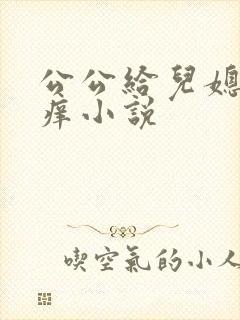 公公給兒媳
痒小說
喫空氣的小人